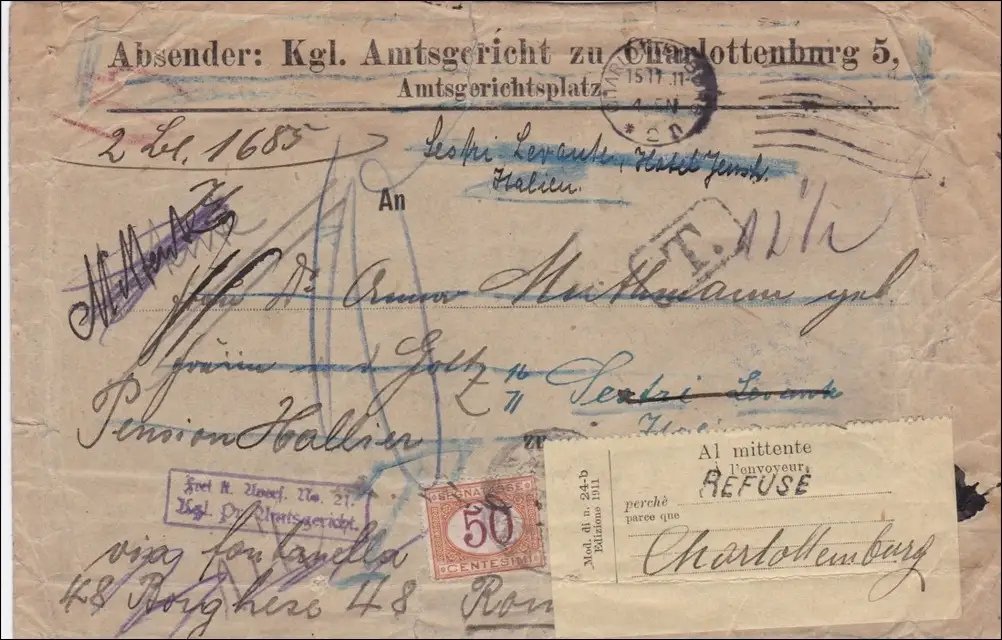 Absender: Kgl. Amtsgericht zu Charlottenburg 5,
Amtsgerichtsplatz.
15 11 11
2 1685
Sestri Levante, Hotel
Italien.
An
T.
12 1/2
Dr. Anna Muthmann geb.
Goltz
16
11
Sestri Levante
Pension Hallier
zu
Frei lt. Avers. No. 21.
Kgl. Pr. Amtsgericht.
SEGNATASSE
50
CENTESIMI
Mod. di n. 24-b
Edizione 1911
Al mittente
à l'envoyeur
REFUSE
perchè
parce que
Charlottemburg
via fontanella
48 Borghese 48 Rom